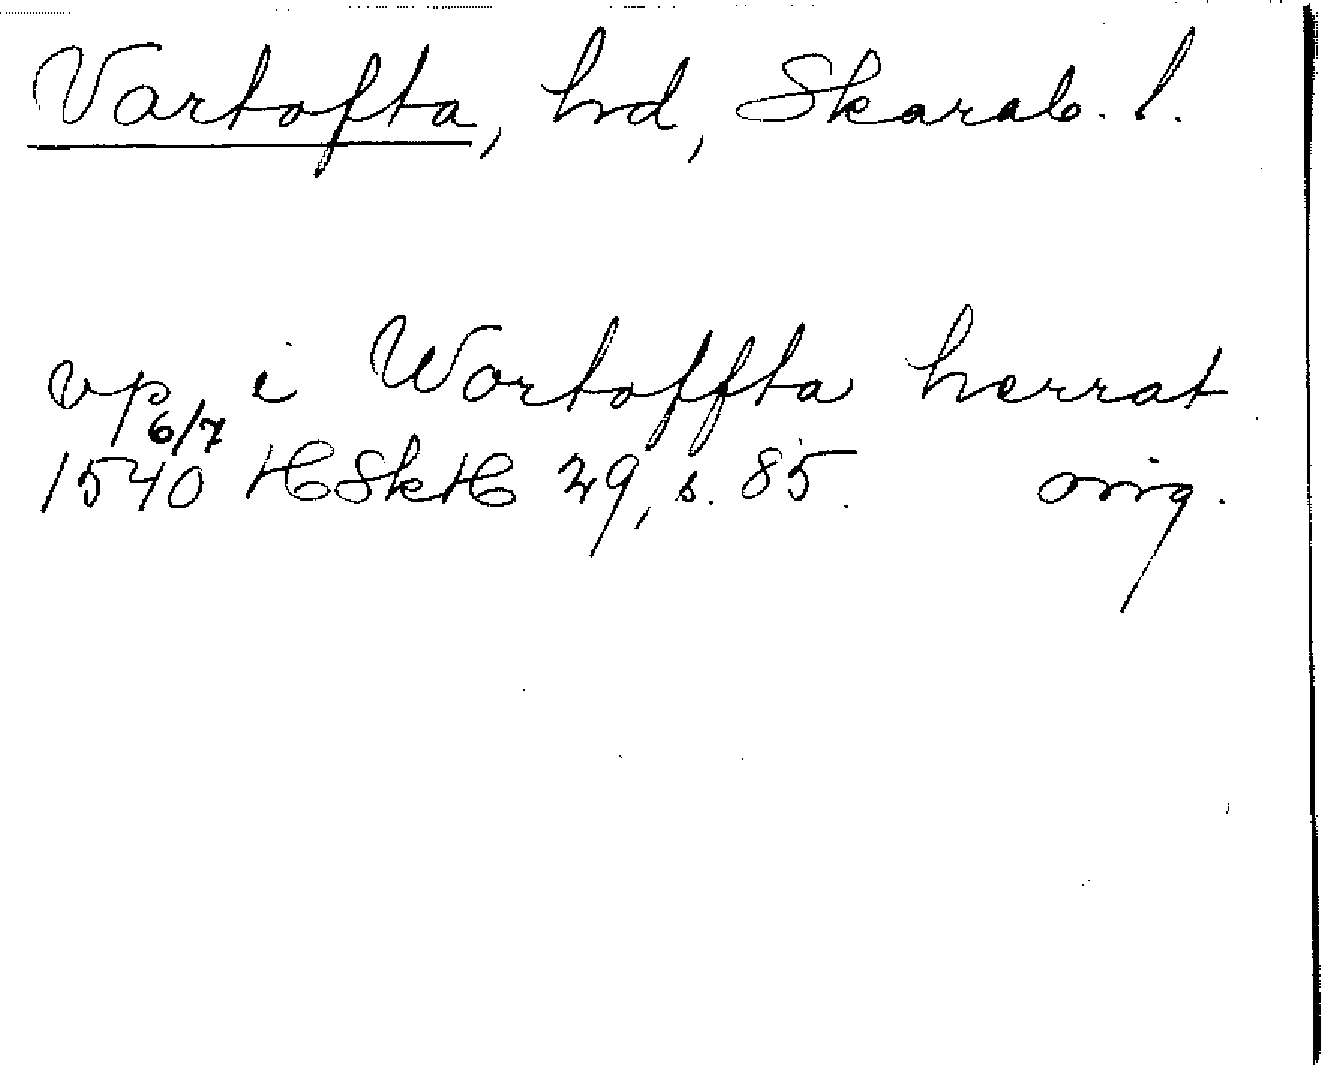 Vartofta, hd, Skarab. l.
vp i Wortoffta herrat
6/7
1540 HSkH 29, s. 85. orig.